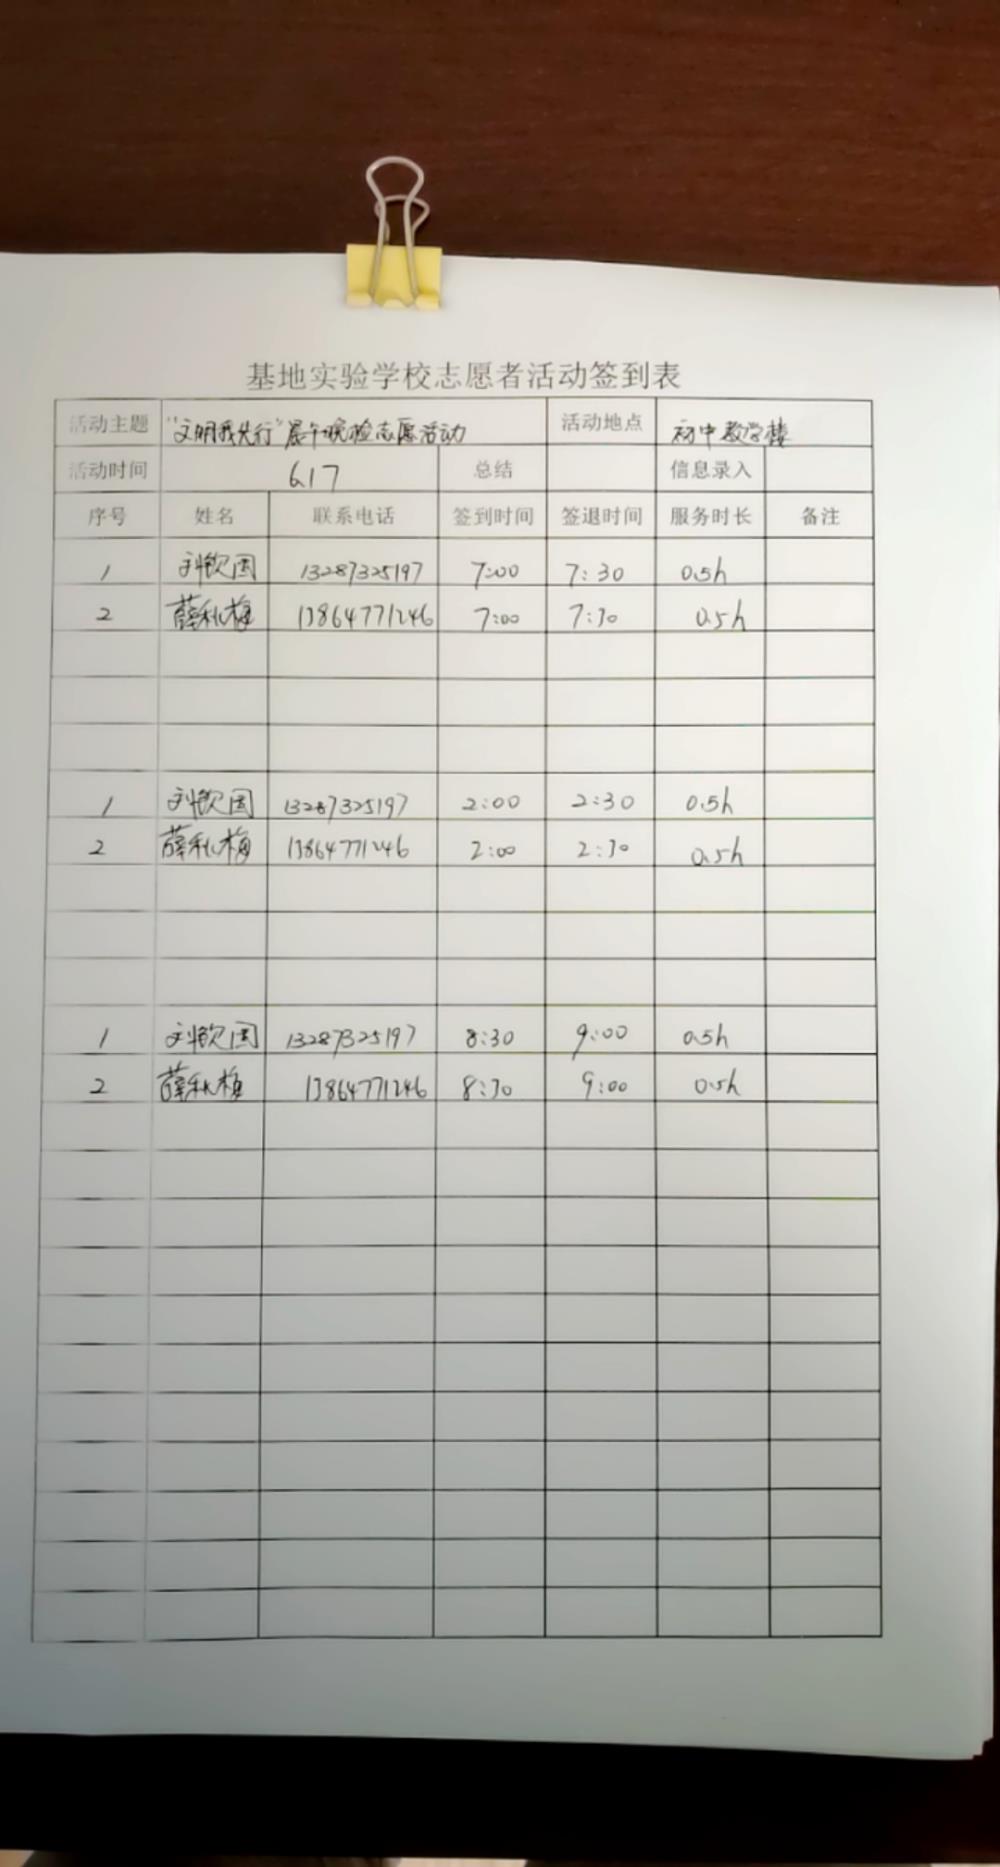 基地实验学校志愿者活动签到表
活动主题 "文明我先行"晨午晚检志愿活动 活动地点 初中教学楼
活动时间 6.17 总结 信息录入
序号 姓名 联系电话 签到时间 签退时间 服务时长 备注
1 刘钦国 13287325197 7:00 7:30 0.5h
2 薛秋梅 13864771246 7:00 7:30 0.5h
1 刘钦国 13287325197 2:00 2:30 0.5h
2 薛秋梅 13864771246 2:00 2:30 0.5h
1 刘钦国 13287325197 8:30 9:00 0.5h
2 薛秋梅 13864771246 8:30 9:00 0.5h